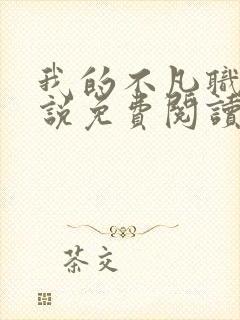 我的不凡職
說免費閱讀
茶交